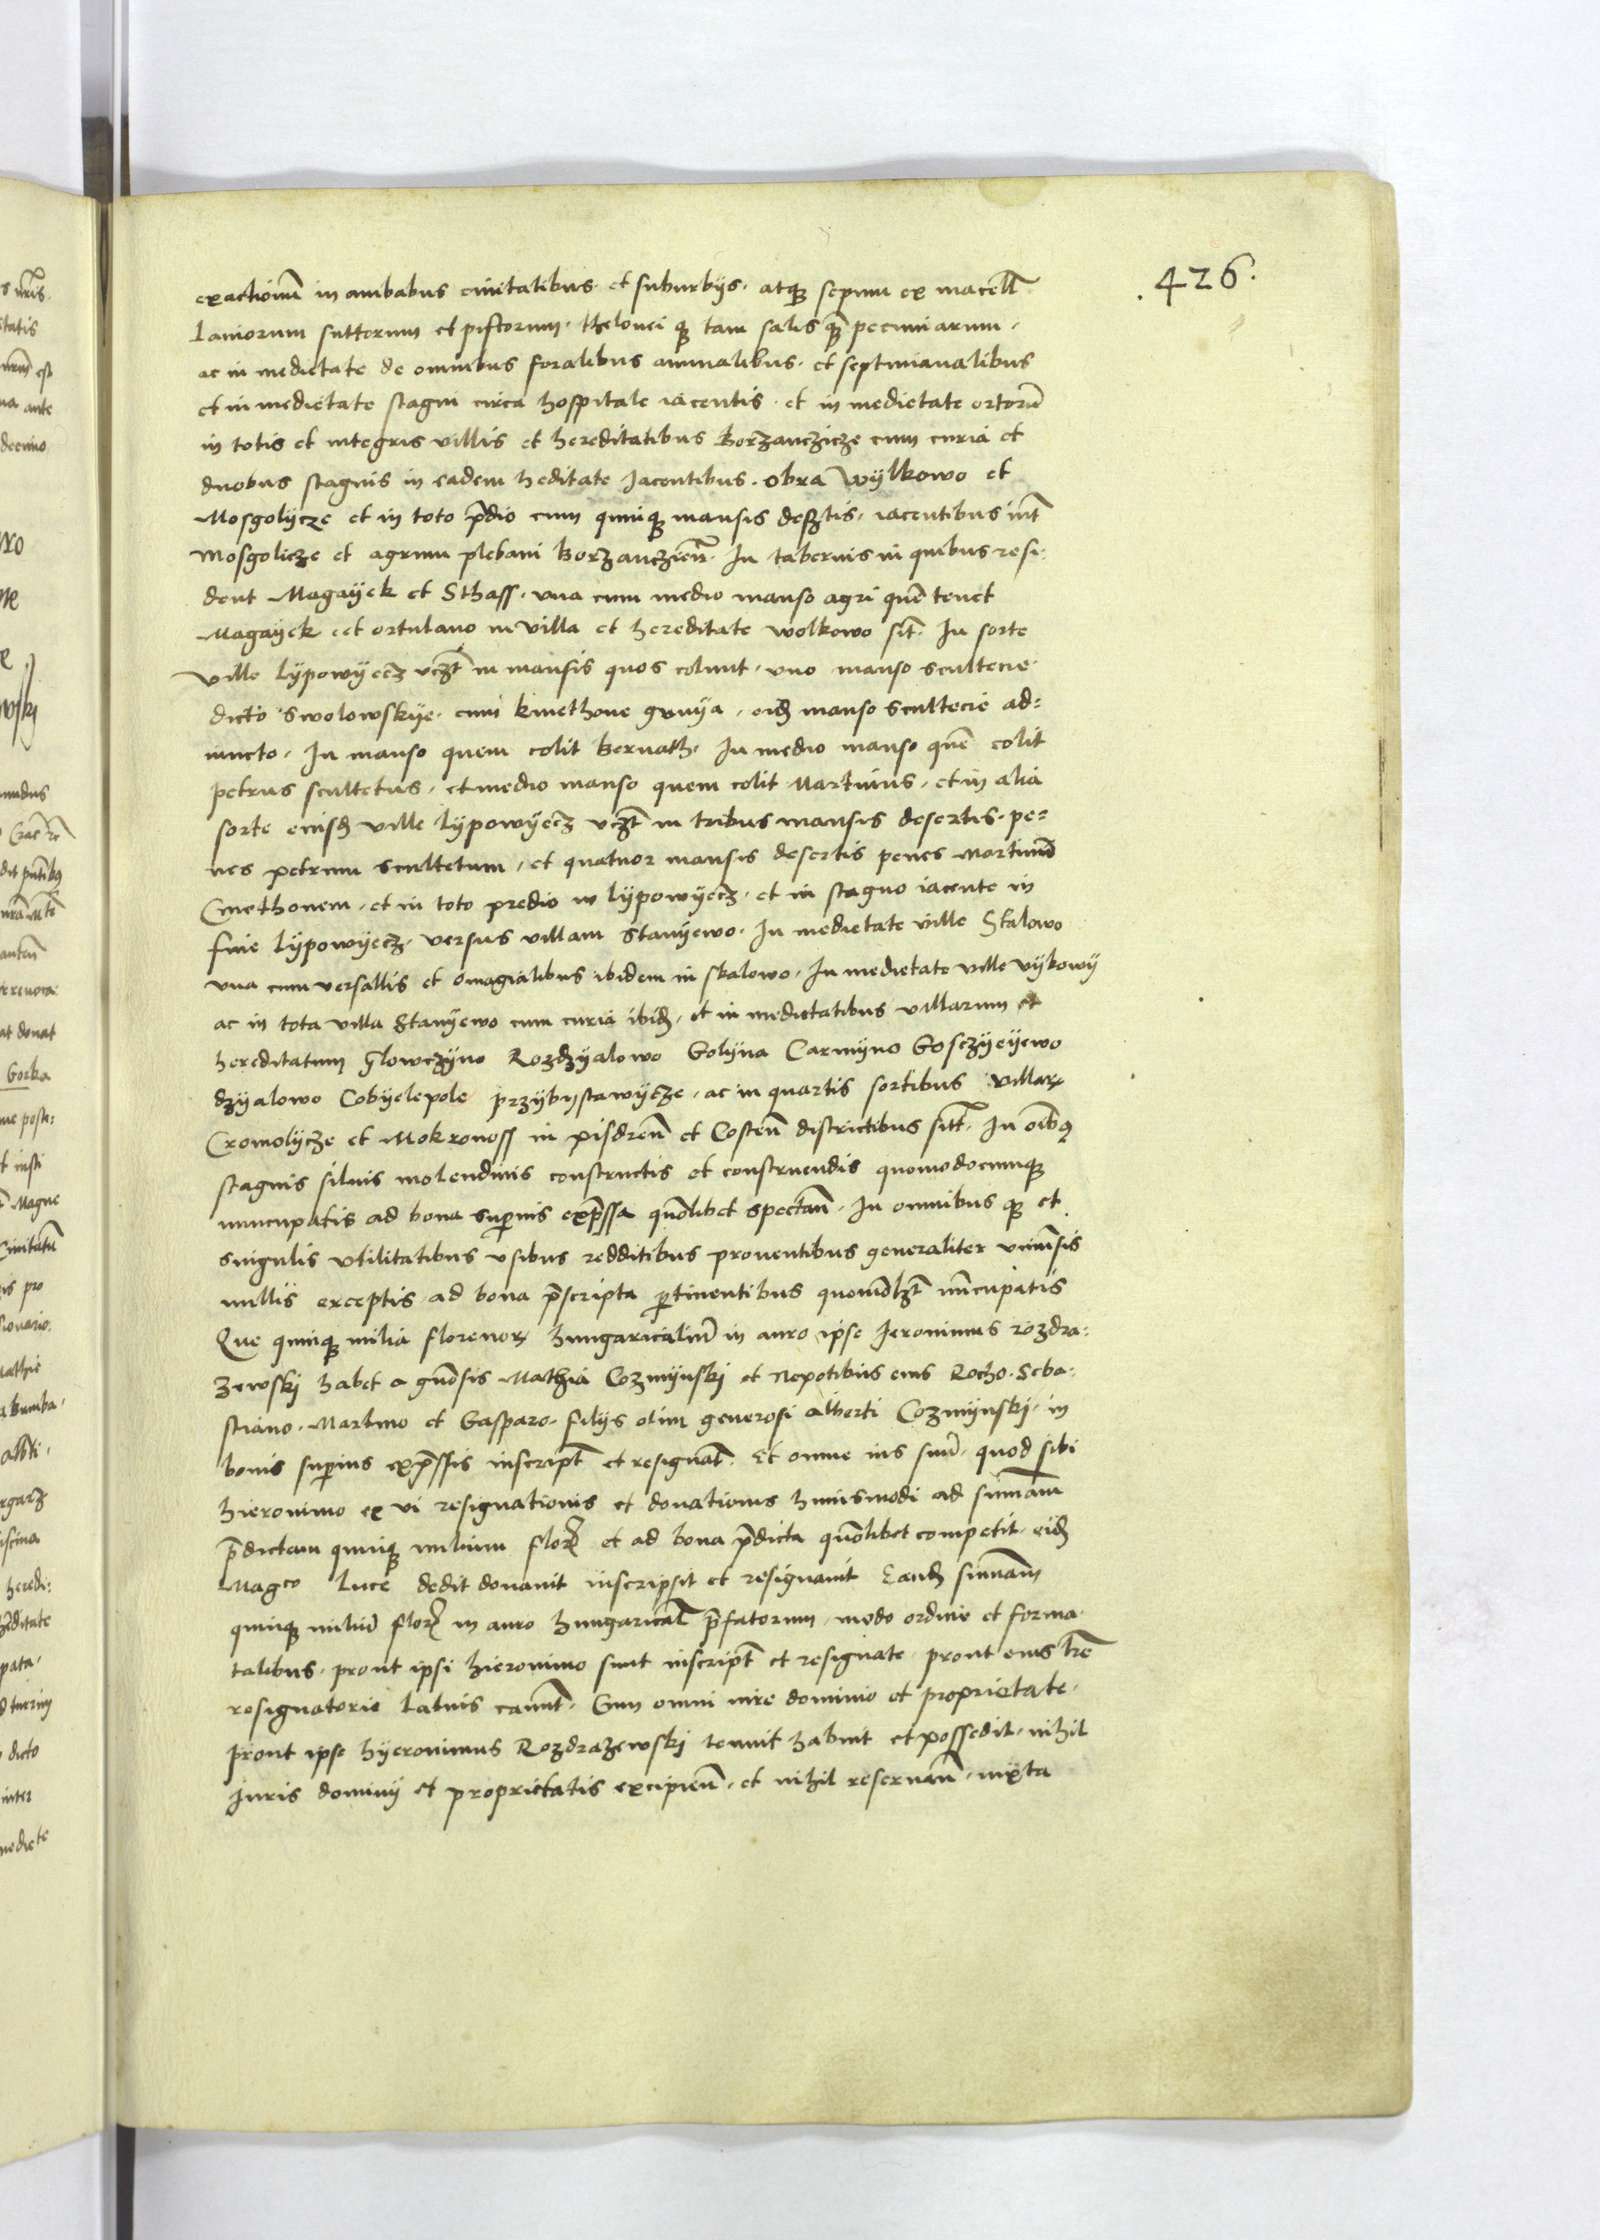 .426.
exactionum in ambabus civitatibus et suburbijs. atq3 sepum ex macell
Laniorum suttorum et pistorum. thelonei q3 tam salis q3 pecuniarum.
ac in medietate de omnibus foralibus annualibus. et septimanalibus
et in medietate stagni circa hospitale iacentis. et in medietate ortorū
in totis et integris villis et hereditatibus Borzanczicze cum curia et
duobus stagnis in eadem heditate Jacentibus. obra Wylkowo et
Mosgolycze et in toto p̄dio cum quinq3 mansis desertis. iacentibus int
Mosgolicze et agrum plebani Borzancziēn. In tabernis in quibus resi:
dent Magayek et Sthass. una cum medio manso agri quē tenet
Magayek et ortulano in villa et hereditate wolkowo sit̄. In sorte
ville Lypowyecz vcz̄t in mansis quos colunt. uno manso scultecie
dicto Swolowskye. cum kmethone gvnya. eid3 manso scultecie ad=
iuncto. In manso quem colit Bernath. In medio manso quē colit
petrus scultetus. et medio manso quem colit Martinus. et in alia
sorte eiusd3 ville Lypowyecz vcz̄t in tribus mansis desertis. pe=
nes petrum scultetum. et quatuor mansis desertis penes Martinū
Cmethonem. et in toto predio in lypowyecz. et in stagno iacente in
fine Lypowyecz. versus villam Stanyewo. In medietate ville Skalowo
una cum versallis et omagialibus ibidem in skalowo. In medietate ville vykowy
ac in tota villa Stanyewo cum curia ibid3. et in medietatibus villarum et
hereditatum Glowczyno Rozdzyalowo Golyna Carmyno Gosczyeyewo
dzyalowo Cobyelepole przybystawycze. ac in quartis sortibus villar
Cromolycze et Mokronoss in pisdreñ et Costeñ districtibus sit̄. In oīb9
stagnis siluis molendinis constructis et construendis quomodocunq3
nuncupatis ad bona superius exp̄ssa quōlibet spectañ. In omnibus q3 et
singulis utilitatibus usibus redditibus proventibus generaliter univ̄sis
nullis exceptis ad bona p̄scripta p̄tinentibus quomōlz̄t nūcupatis
Que quinq3 milia florenor hungaricaliū in auro ipse Jeronimus rozdra:
zewskj habet a gn̄osis Mathia Cozmynskj et nepotibus eius Rocho. Seba:
stiano. Martino et Gasparo. filijs olim generosi alberti Cozmynskj. in
bonis superius exp̄ssis inscript̄ et resignat̄. Et omne ius suū. quod sibi
hieronimo ex vi resignationis et donationis huiusmodi ad sum̄am
p̄dictam quinq3 milium flor et ad bona p̄dicta quōlibet competit. eid3
Magco Luce dedit donavit inscripsit et resignavit Eand3 sum̄am
quinq3 miliū flor in auro hungarical p̄fatorum. modo ordine et forma
talibus. prout ipsi hieronimo sunt inscript̄ et resignate. prout eius lr̄e
resignatorie latius canunt. Cum omni iure dominio et proprietate.
prout ipse hyeronimus Rozdrazewskj tenuit habuit et possedit. nihil
Juris dominij et proprietatis excipieñ. et nihil reservañ. iuxta